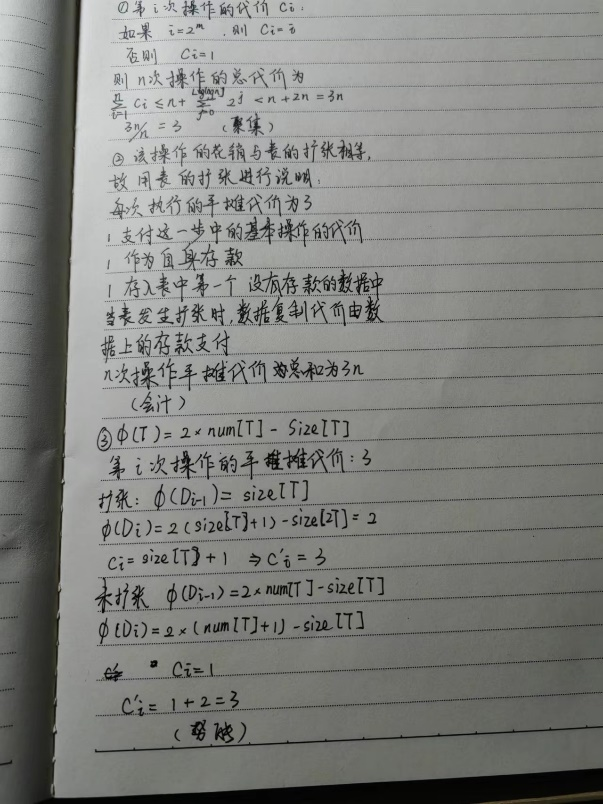 ①第i次操作的代价Ci:
如果 i=2^m ,则 Ci=i
否则 Ci=1
则n次操作的总代价为
∑_{i=1}^{n} Ci ≤ n+ ∑_{j=0}^{⌊lgn⌋} 2^j < n+2n = 3n
3n/n = 3 (聚集)
② 该操作的花销与表的扩张相等,
故用表的扩张进行说明,
每次执行的平摊代价为3
1 支付这一步中的基本操作的代价
1 作为自身存款
1 存入表中第一个没有存款的数据中
当表发生扩张时,数据复制代价由数
据上的存款支付
n次操作平摊代价为总和为3n
(会计)
③ϕ(T)=2×num[T]-Size[T]
第i次操作的平摊代价:3
扩张: ϕ(Di-1)= size[T]
ϕ(Di)=2(size[T]+1)-size[2T]=2
Ci=size[T]+1 ⇒C'i=3
未扩张 ϕ(Di-1)=2×num[T]-size[T]
ϕ(Di)=2×(num[T]+1)-size[T]
Ci=1
C'i= 1+2=3
(势能)